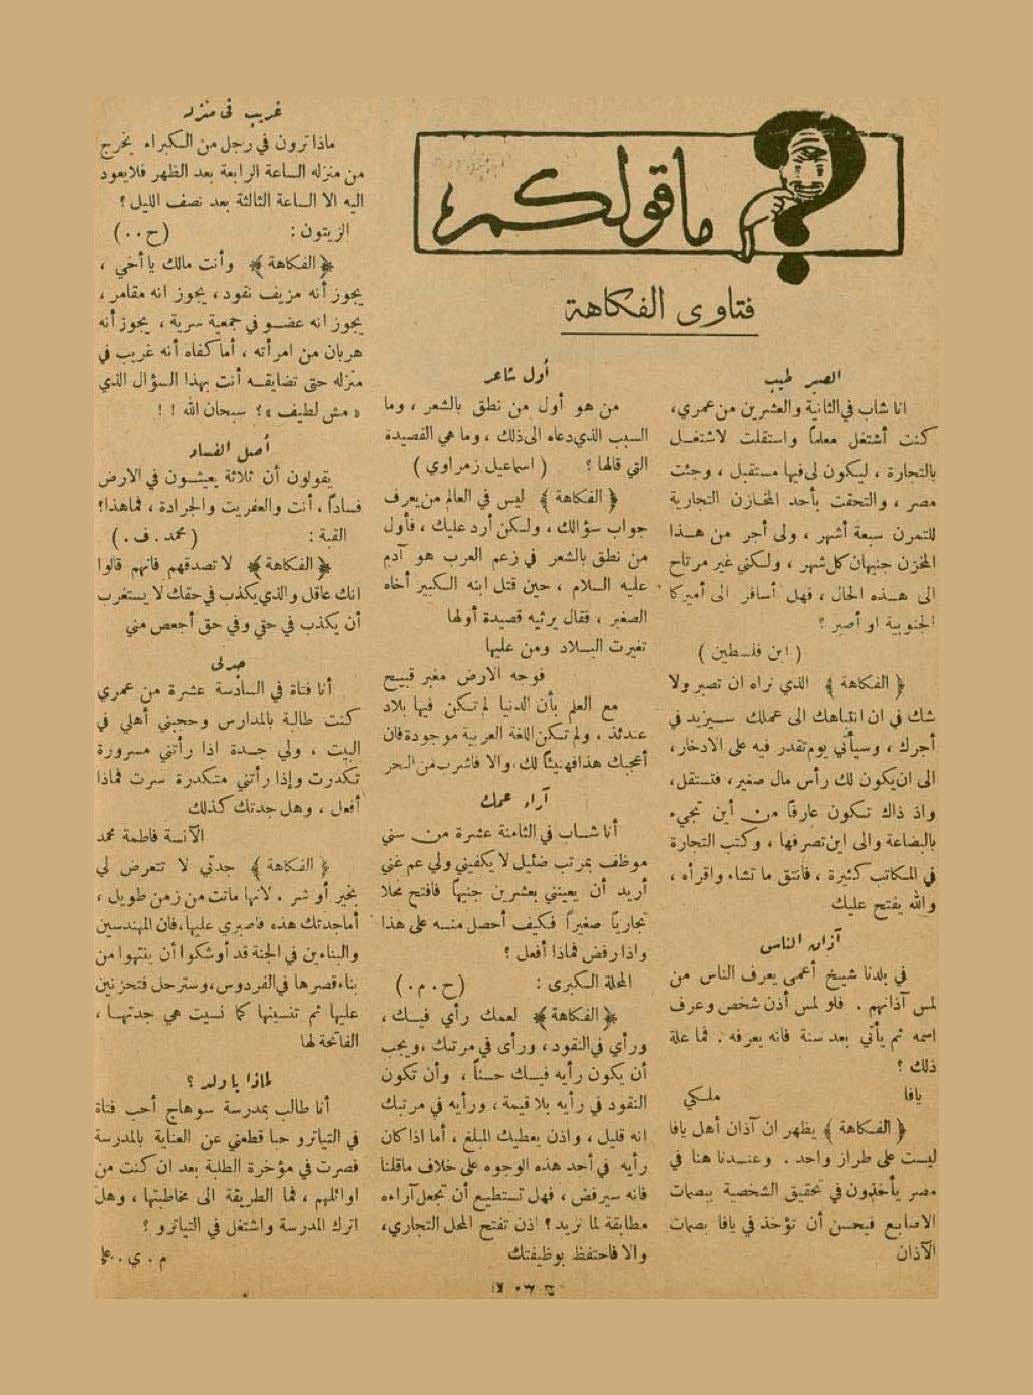 ما قولكم
فتاوى الفكاهة
الصبر طيب
انا شاب في الثانية والعشرين من عمري،
كنت أشتغل معلماً واستقلت لاشتغل
بالتجارة ، ليكون لي فيها مستقبل ، وجئت
مصر ، والتحقت بأحد المخازن التجارية
للتمرن سبعة أشهر ، ولى أجر من هذا
المخزن جنيهان كل شهر ، ولكني غير مرتاح
الى هذه الحال ، فهل أسافر الى أميركا
الجنوبية او أصبر ؟
( ابن فلسطين )
﴿ الفكاهة ﴾ الذي نراه ان تصبر ولا
شك في ان انتباهك الى عملك سيزيد في
أجرك ، وسيأتي يوم تقدر فيه على الادخار،
الى ان يكون لك رأس مال صغير، فتستقل،
واذ ذاك تكون عارفاً من أين تجيء
بالبضاعة والى اين تصرفها ، وكتب التجارة
في المكاتب كثيرة ، فانتق ما تشاء واقرأه ،
والله يفتح عليك
آذان الناس
في بلدنا شيخ أعمى يعرف الناس من
لمس آذانهم . فلو لمس أذن شخص وعرف
اسمه ثم يأتي بعد سنة فانه يعرفه . فما علة
ذلك ؟
يافا ملكي
﴿ الفكاهة ﴾ يظهر ان آذان أهل يافا
ليست على طراز واحد . وعندنا هنا في
مصر يأخذون في تحقيق الشخصية ببصمات
الاصابع فيحسن أن تؤخذ في يافا بصمات
الآذان
أول شاعر
من هو أول من نطق بالشعر ، وما
السبب الذي دعاه الى ذلك ، وما هي القصيدة
التي قالها ؟ ( اسماعيل زمراوي )
﴿ الفكاهة ﴾ ليس في العالم من يعرف
جواب سؤالك ، ولكن أرد عليك ، فأول
من نطق بالشعر في زعم العرب هو آدم
عليه السلام ، حين قتل ابنه الكبير أخاه
الصغير ، فقال يرثيه قصيدة أولها
تغيرت البلاد ومن عليها
فوجه الارض مغبر قبيح
مع العلم بأن الدنيا لم تكن فيها بلاد
عندئذ ، ولم تكن اللغة العربية موجودة فان
أعجبك هذا فهنيئاً لك والا فاشرب من البحر
آراء عمك
أنا شاب في الثامنة عشرة من سني
موظف بمرتب ضئيل لا يكفيني ولي عم غني
أريد أن يعينني بعشرين جنيهاً فافتح محلا
تجارياً صغيراً فكيف أحصل منه على هذا
واذا رفض فماذا أفعل ؟
المحلة الكبرى : (ح . م .)
﴿ الفكاهة ﴾ لعمك رأي فيك ،
ورأي في النقود ، ورأى في مرتبك ، ويجب
أن يكون رأيه فيك حسناً ، وأن تكون
النقود في رأيه بلا قيمة ، ورأيه في مرتبك
انه قليل ، واذن يعطيك المبلغ ، أما اذا كان
رأيه في أحد هذه الوجوه على خلاف ما قلنا
فانه سيرفض ، فهل تستطيع أن تجعل آراءه
مطابقة لما نريد ؟ اذن تفتح المحل التجاري،
والا فاحتفظ بوظيفتك
غريب في منزله
ماذا ترون في رجل من الكبراء يخرج
من منزله الساعة الرابعة بعد الظهر فلا يعود
اليه الا الساعة الثالثة بعد نصف الليل ؟
الزيتون : (ح . .)
﴿ الفكاهة ﴾ وأنت مالك يا أخي ،
يجوز أنه مزيف نقود ، يجوز انه مقامر ،
يجوز انه عضو في جمعية سرية ، يجوز أنه
هربان من امرأته ، أما كفاه أنه غريب في
منزله حتى تضايقه أنت بهذا السؤال الذي
« مش لطيف » ؟ سبحان الله ! !
أصل الفساد
يقولون أن ثلاثة يعيشون في الارض
فساداً ، أنت والعفريت والجرادة ، فما هذا؟
القبة : ( محمد . ف . )
﴿ الفكاهة ﴾ لا تصدقهم فانهم قالوا
انك عاقل والذي يكذب في حقك لا يستغرب
أن يكذب في حقي وفي حق أجعص مني
جدتي
أنا فتاة في السادسة عشرة من عمري
كنت طالبة بالمدارس وحجبني أهلي في
البيت ، ولي جدة اذا رأتني مسرورة
تكدرت وإذا رأتني متكدرة سرت فماذا
أفعل ، وهل جدتك كذلك
الآنسة فاطمة محمد
﴿ الفكاهة ﴾ جدتي لا تتعرض لي
بخير أو شر . لانها ماتت من زمن طويل ،
أما جدتك هذه فاصبري عليها، فان المهندسين
والبنائين في الجنة قد أوشكوا أن ينتهوا من
بناء قصرها في الفردوس، وسترحل فتحزنين
عليها ثم تنسينها كما نسيت هي جدتها ،
الفاتحة لها
لماذا يا ولد ؟
أنا طالب بمدرسة سوهاج أحب فتاة
في التياترو حبا قطعني عن العناية بالمدرسة
فصرت في مؤخرة الطلبة بعد ان كنت من
اوائلهم ، فما الطريقة الى مخاطبتها ، وهل
اترك المدرسة واشتغل في التياترو ؟
م . ي . على